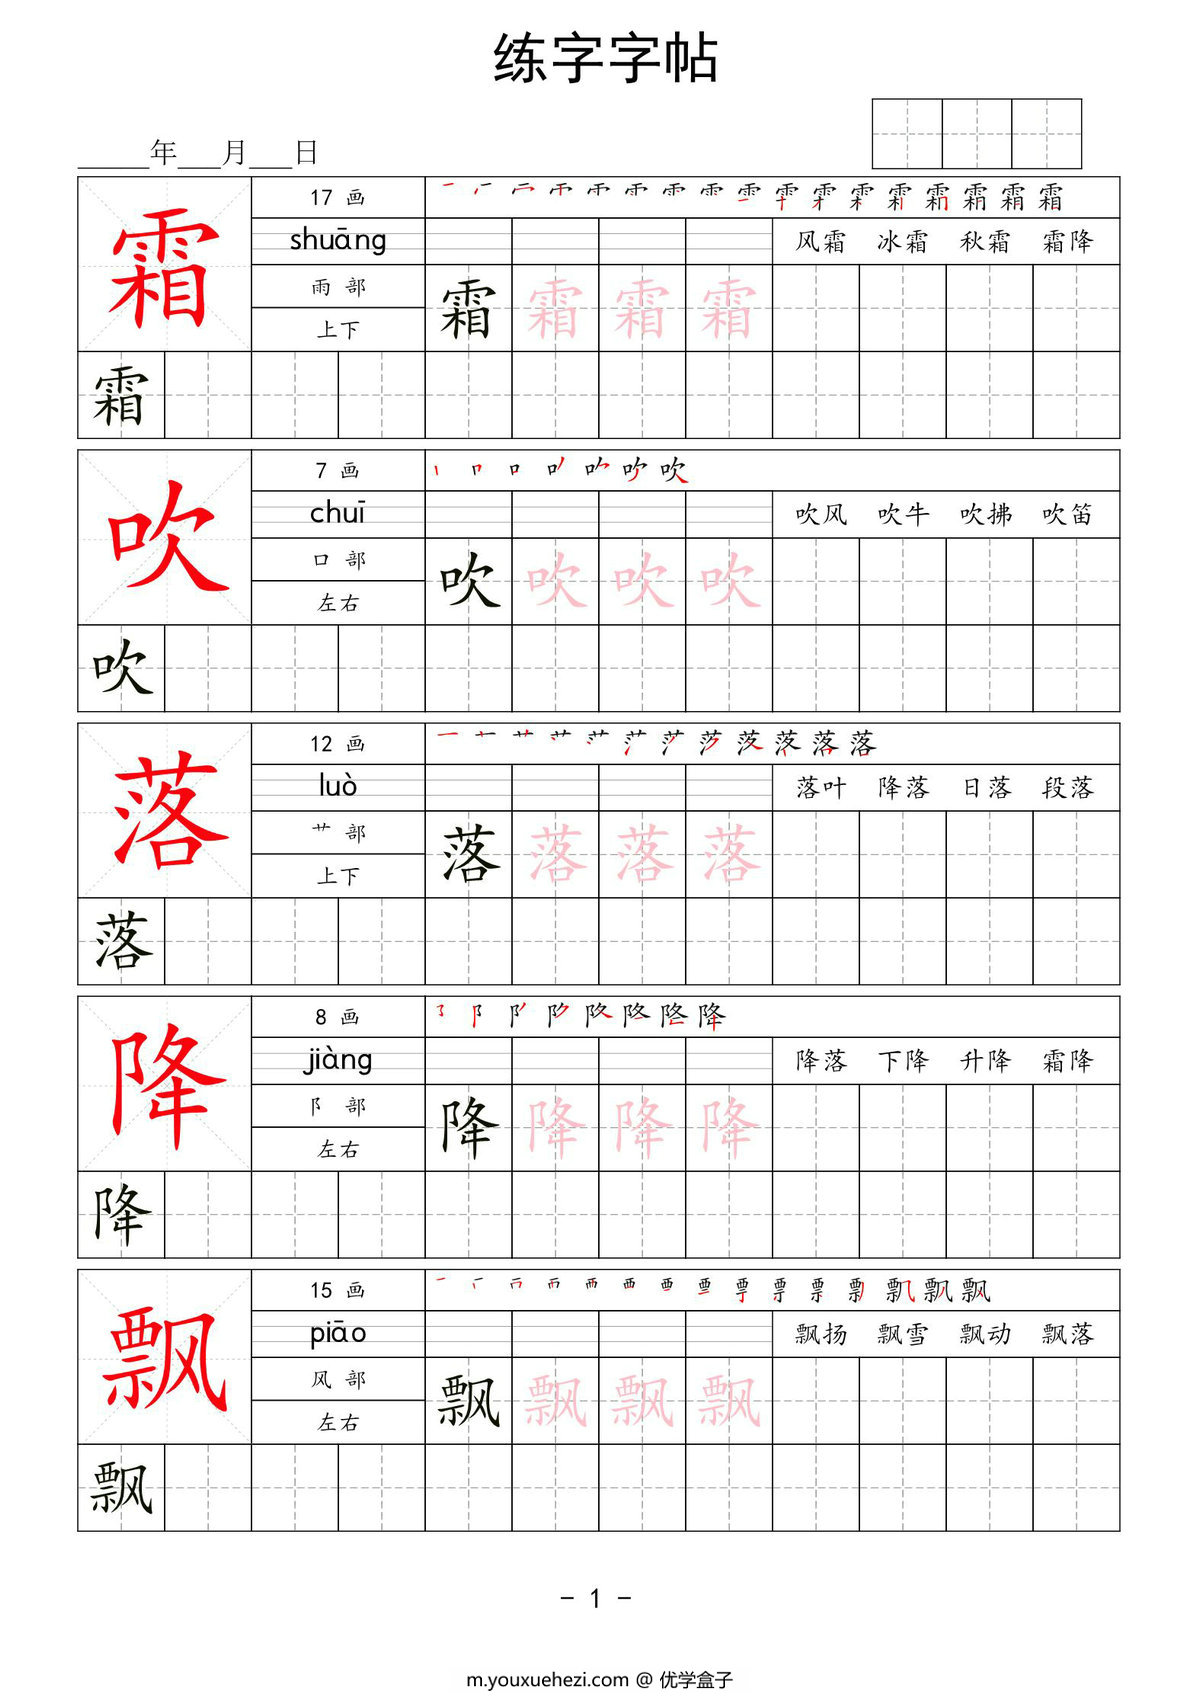 练字字帖
______年___月___日
17 画
shuāng
风霜 冰霜 秋霜 霜降
雨 部
霜 霜 霜 霜 霜
上下
霜
7 画
chuī
吹风 吹牛 吹拂 吹笛
口 部
吹 吹 吹 吹 吹
左右
吹
12 画
luò
落叶 降落 日落 段落
艹 部
落 落 落 落 落
上下
落
8 画
jiàng
降落 下降 升降 霜降
阝 部
降 降 降 降 降
左右
降
15 画
piāo
飘扬 飘雪 飘动 飘落
风 部
飘 飘 飘 飘 飘
左右
飘
- 1 -
m.youxuehezi.com @ 优学盒子